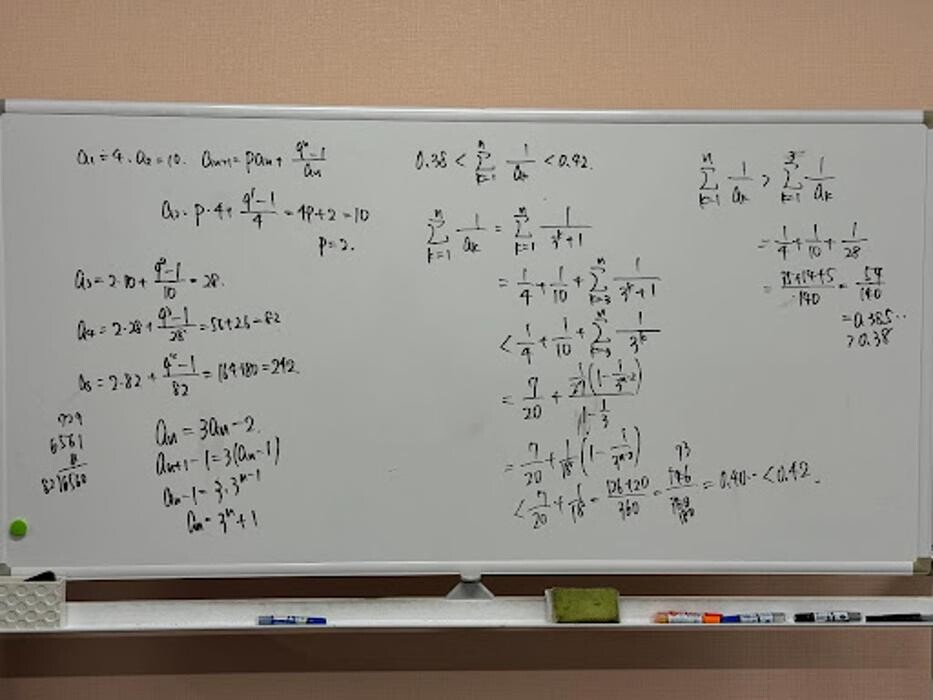 a₁=4. a₂=10. aₙ₊₁=paₙ+(9ⁿ-1)/aₙ
a₂=p·4+(9¹-1)/4=4p+2=10
p=2.
a₃=2·10+(9²-1)/10=28.
a₄=2·28+(9³-1)/28=56+26=82
a₅=2·82+(9⁴-1)/82=164+80=242.
729
6561
82)6560
aₙ₊₁-1=3(aₙ-1)
aₙ-1=3·3ⁿ⁻¹
aₙ=3ⁿ+1
0.38<∑ₖ₌₁ⁿ 1/aₖ<0.42.
∑ₖ₌₁ⁿ 1/aₖ=∑ₖ₌₁ⁿ 1/(3ᵏ+1)
=1/4+1/10+∑ₖ₌₃ⁿ 1/(3ᵏ+1)
<1/4+1/10+∑ₖ₌₃ⁿ 1/3ᵏ
=7/20+(1/27(1-1/3ⁿ⁻²))/(1-1/3)
=7/20+1/18(1-1/3ⁿ⁻²)
<7/20+1/18=(126+20)/360=146/360=0.40··<0.42.
73
180
∑ₖ₌₁ⁿ 1/aₖ>∑ₖ₌₁³ 1/aₖ
=1/4+1/10+1/28
=(35+14+5)/140=54/140
=0.385··
>0.38